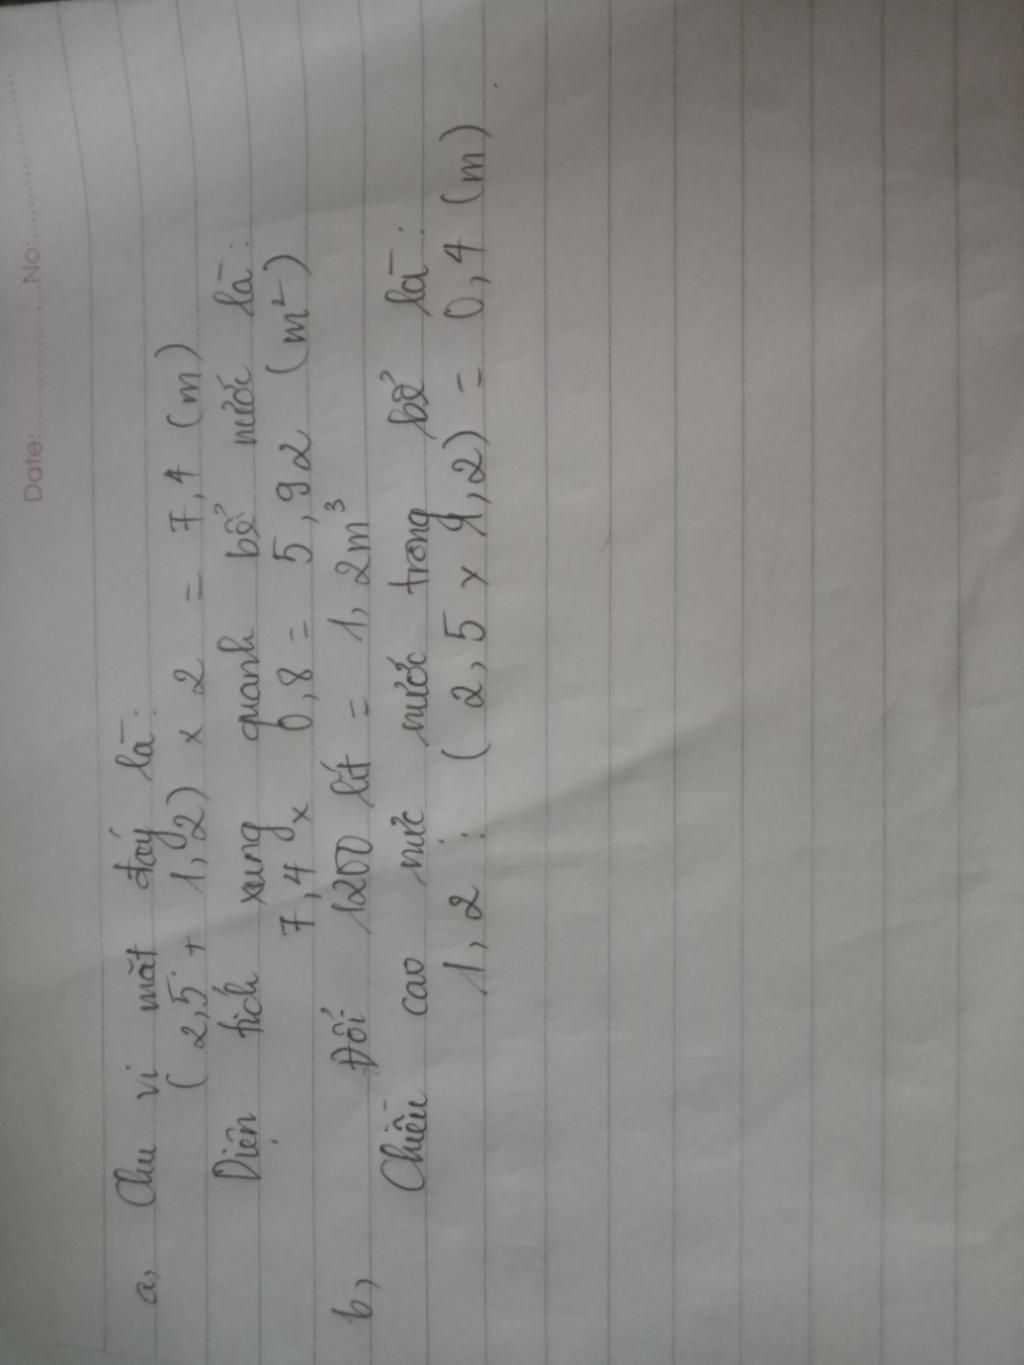 Date:....................No:....................
a, Chu vi mặt đáy là:
(2,5 + 1,2) x 2 = 7,4 (m)
Diện tích xung quanh bể nước là:
7,4 x 0,8 = 5,92 (m²)
b, Đổi 1200 lít = 1,2m³
Chiều cao mức nước trong bể là:
1,2 : (2,5 x 1,2) = 0,4 (m)